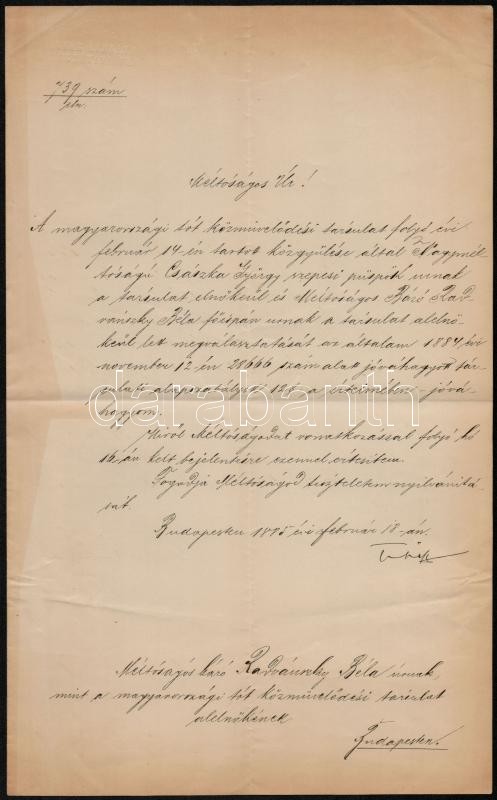 739 szám
eln.
Méltóságos Úr!
A magyarországi tót közmüvelődési társulat folyó évi
február 14-én tartott közgyülése által Nagymél
tóságu Csaszka György szepesi püspök urnak
a társulat elnökéül és Méltóságos Báró Rad
vánszky Béla főispán urnak a társulat alelnö-
kéül lett megválasztatását az általam 1884 évi
november 12-én 28666 szám alatt jóváhagyott tár
sulati alapszabályok 12 §-a értelmében jóvá
hagyom.
Miről Méltóságodat vonatkozással folyó hó
16-án kelt bejelentésére ezennel értesitem.
Fogadja Méltóságod tiszteletem nyilvánitá-
sát.
Budapesten 1885 évi február 18-án.
darabanth
Méltóságos báró Radvánszky Béla úrnak,
mint a magyarországi tót közmüvelődési társulat
alelnökének
Budapesten.